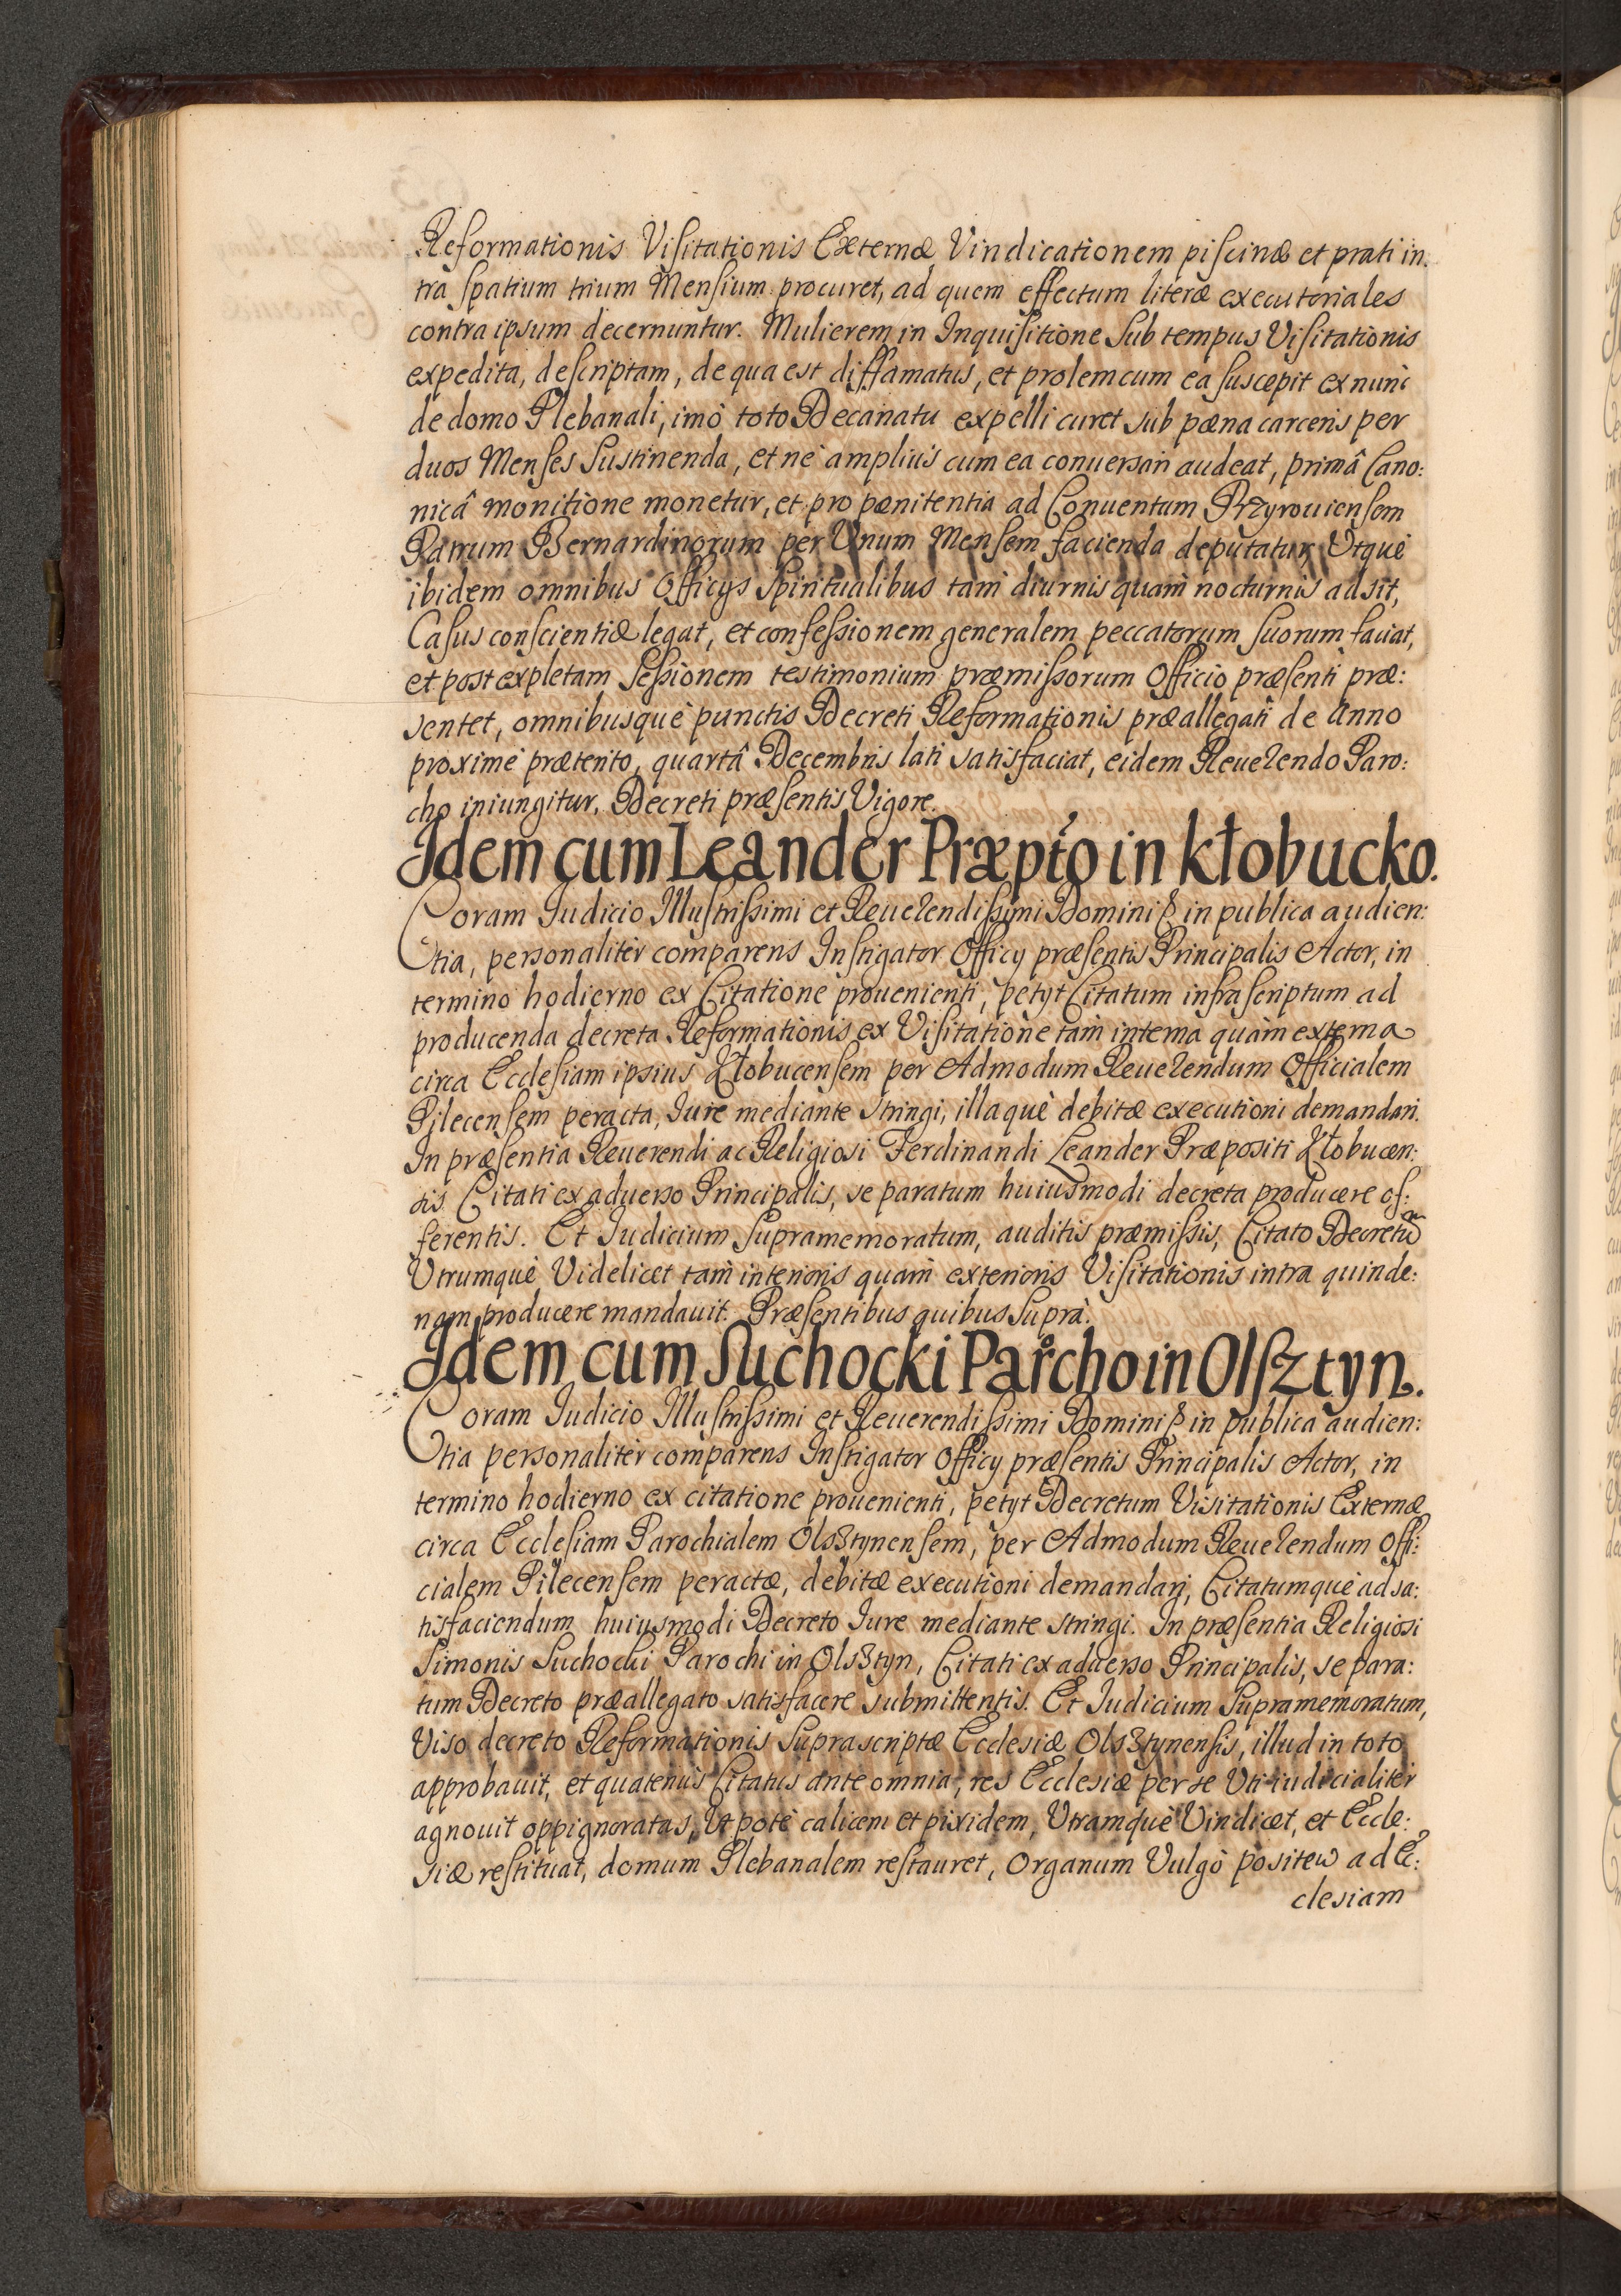 Reformationis Visitationis Externæ Vindicationem piscinæ et prati in:
tra spatium trium Mensium procuret, ad quem effectum literæ executoriales
contra ipsum decernuntur. Mulierem in Inquisitione sub tempus Visitationis
expedita, descriptam, de qua est diffamatus, et prolem cum ea suscepit ex nunc
de domo Plebanali, imò toto Decanatu expelli curet sub pæna carceris per
duos Menses sustinenda, et nè ampliùs cum ea conuersari audeat, primâ Cano:
nicâ monitione monetur, et pro pænitentia ad Conuentum Przyrouiensem
Patrum Bernardinorum per Vnum Mensem facienda deputatur, Vtquè
ibidem omnibus Officys Spiritualibus tam̀ diurnis quam̀ nocturnis adsit,
Casus conscientiæ legat, et confessionem generalem peccatorum suorum faciat,
et post expletam sessionem testimonium præmissorum Officio præsenti præ:
sentet, omnibusquè punctis Decreti Reformationis præallegati de Anno
proximè præterito, quartâ Decembris lati satisfaciat, eidem Reuerendo Paro:
cho iniungitur, Decreti præsentis Vigore.
Idem cum Leander Præpto in Kłobucko.
Coram Iudicio Illustrissimi et Reuerendissimi Domini & in publica audien:
tia, personalitèr comparens Instigator Officy præsentis Principalis Actor, in
termino hodierno ex Citatione prouenienti, petyt Citatum infrascriptum ad
producenda decreta Reformationis ex Visitatione tam̀ interna quàm externa
circa Ecclesiam ipsius Kłobucensem per Admodum Reuerendum Officialem
Pilecensem peracta, Iure mediante stringi, illaquè debitæ executioni demandari.
In præsentia Reuerendi ac Religiosi Ferdinandi Leander Præpositi Kłobucen:
sis Citati ex aduerso Principalis, se paratum huiusmodi decreta producere of:
ferentis. Et Iudicium supramemoratum, auditis præmissis, Citato Decretum
Vtrumquè Videlicet tam̀ interioris quam̀ exterioris Visitationis intra quinde:
nam producere mandauit. Præsentibus quibus suprà.
Idem cum Suchocki Parcho in Olsztyn.
Coram Iudicio Illustrissimi et Reuerendissimi Domini & in publica audien:
tia personalitèr comparens Instigator Officy præsentis Principalis Actor, in
termino hodierno ex citatione prouenienti, petyt Decretum Visitationis Externæ
circa Ecclesiam Parochialem Olsztynensem, per Admodum Reuerendum Offi:
cialem Pilecensem peractæ, debitæ executioni demandari, Citatumquè ad sa:
tisfaciendum huiusmodi Decreto Iure mediante stringi. In præsentia Religiosi
Simonis Suchocki Parochi in Olsztyn, Citati ex aduerso Principalis, se para:
tum Decreto præallegato satisfacere submittentis. Et Iudicium supramemoratum,
Viso decreto Reformationis suprascriptæ Ecclesiæ Olsztynensis, illud in toto
approbauit, et quatenùs Citatus ante omnia, res Ecclesiæ per se Vti iudicialitèr
agnouit oppignoratas, Vt potè calicem et pixidem, Vtramquè Vindicet, et Eccle:
siæ restituat, domum Plebanalem restauret, Organum Vulgò positew ad Ec:
clesiam